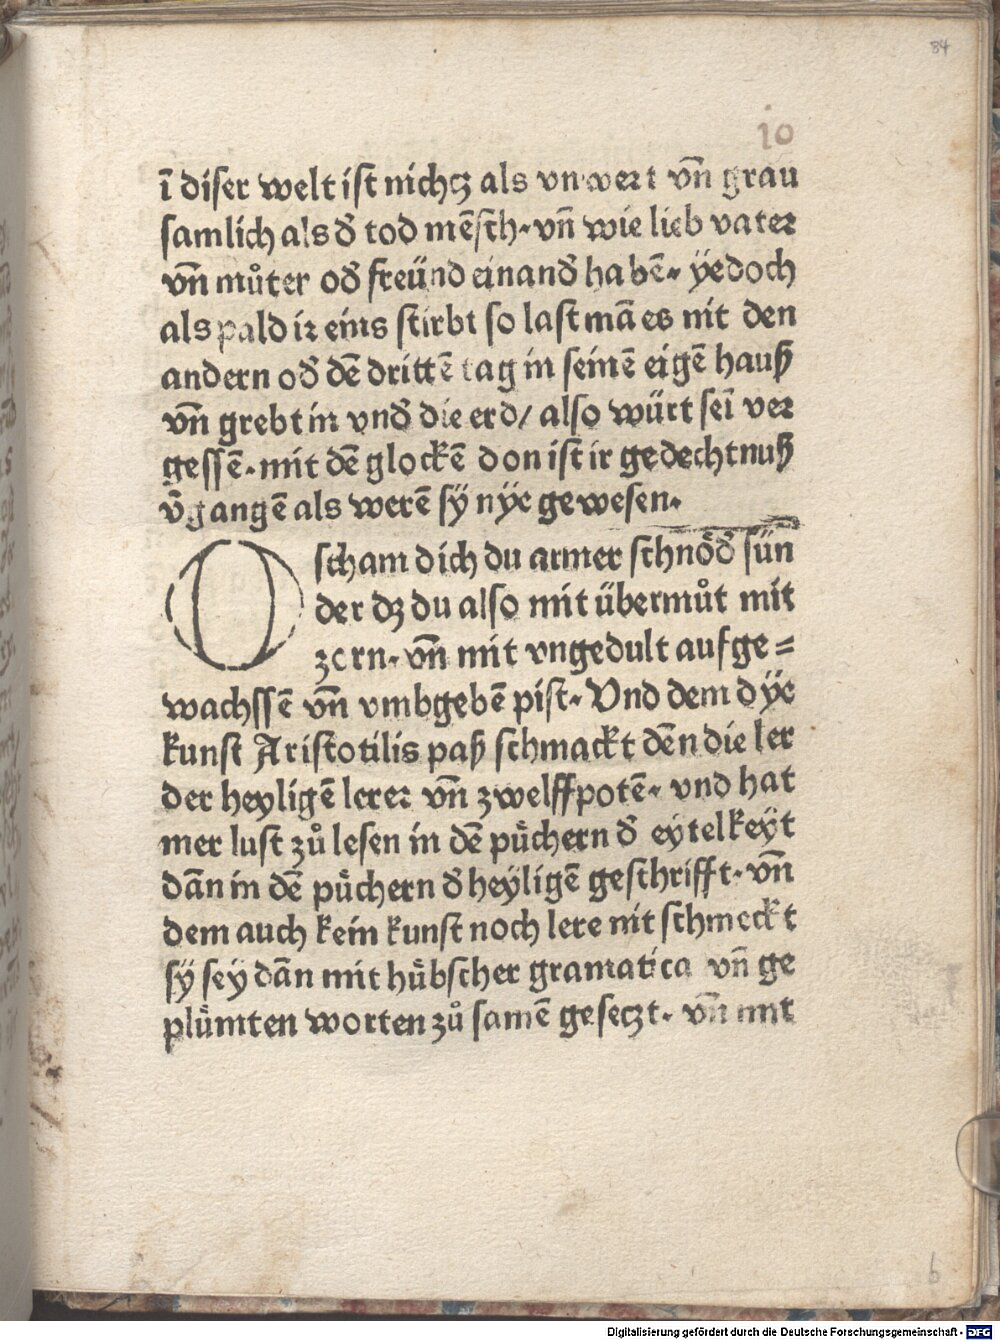 84
10
ī diser welt ist nichcz als vnwert vn̄ grau
samlich als đ tod mēsch. vn̄ wie lieb vater
vn̄ můter ođ freünd einanđ habē. ÿedoch
als pald ir eins stirbt so last mā es nit den
andern ođ dē drittē tag in seinē eigē hauß
vn̄ grebt in vnđ die erd/ also würt sei ver
gessē. mit dē glockē don ist ir gedechtnuß
v̄gangē als werē sÿ nÿe gewesen.
O scham dich du armer schnöđ sün
der dz du also mit übermůt mit
zorn. vn̄ mit vngedult aufge=
wachssē vn̄ vmbgebē pist. Vnd dem dÿe
kunst Aristotilis paß schmackt dēn die ler
der heyligē lerer vn̄ zwelffpotē. vnd hat
mer lust zů lesen in dē pu̍chern đ eytelkeÿt
dān in dē pu̍chern đ heÿligē geschrifft. vn̄
dem auch kein kunst noch lere nit schmeckt
sÿ seÿ dān mit hübscher gramatica vn̄ ge
plümten worten zů samē geseczt. vn̄ mit
b
Digitalisierung gefördert durch die Deutsche Forschungsgemeinschaft - DFG